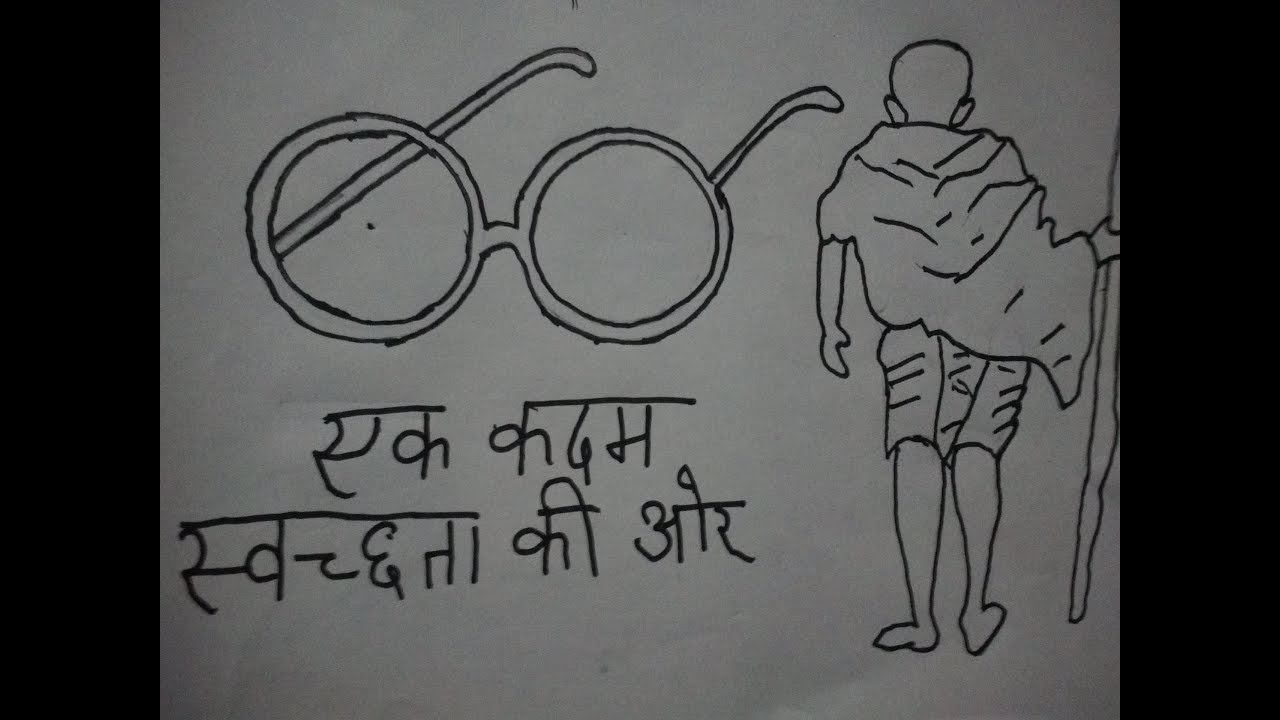 एक कदम
स्वच्छता की ओर